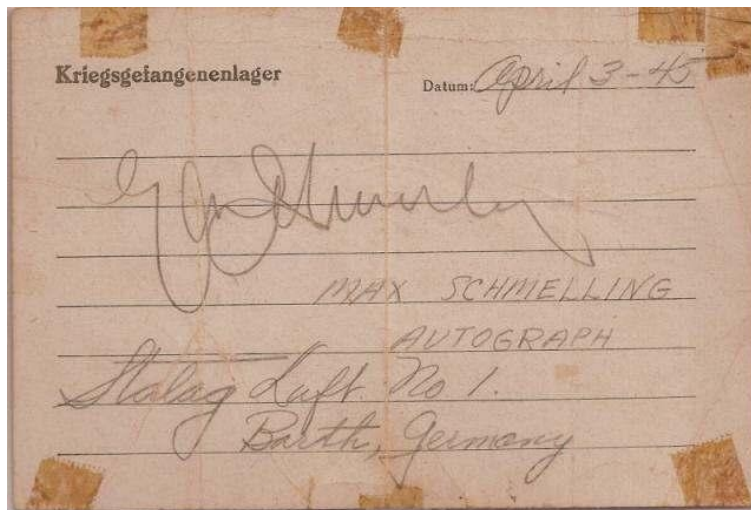 Kriegsgefangenenlager Datum: April 3-45
MAX SCHMELLING
AUTOGRAPH
Stalag Luft. No 1.
Barth, Germany